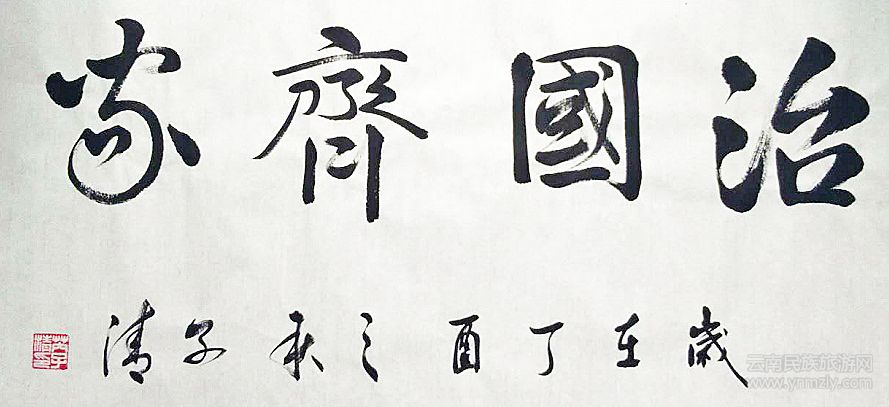 治國齊家
歲在丁酉之秋子清
云南民族旅游网
www.ynmzly.com